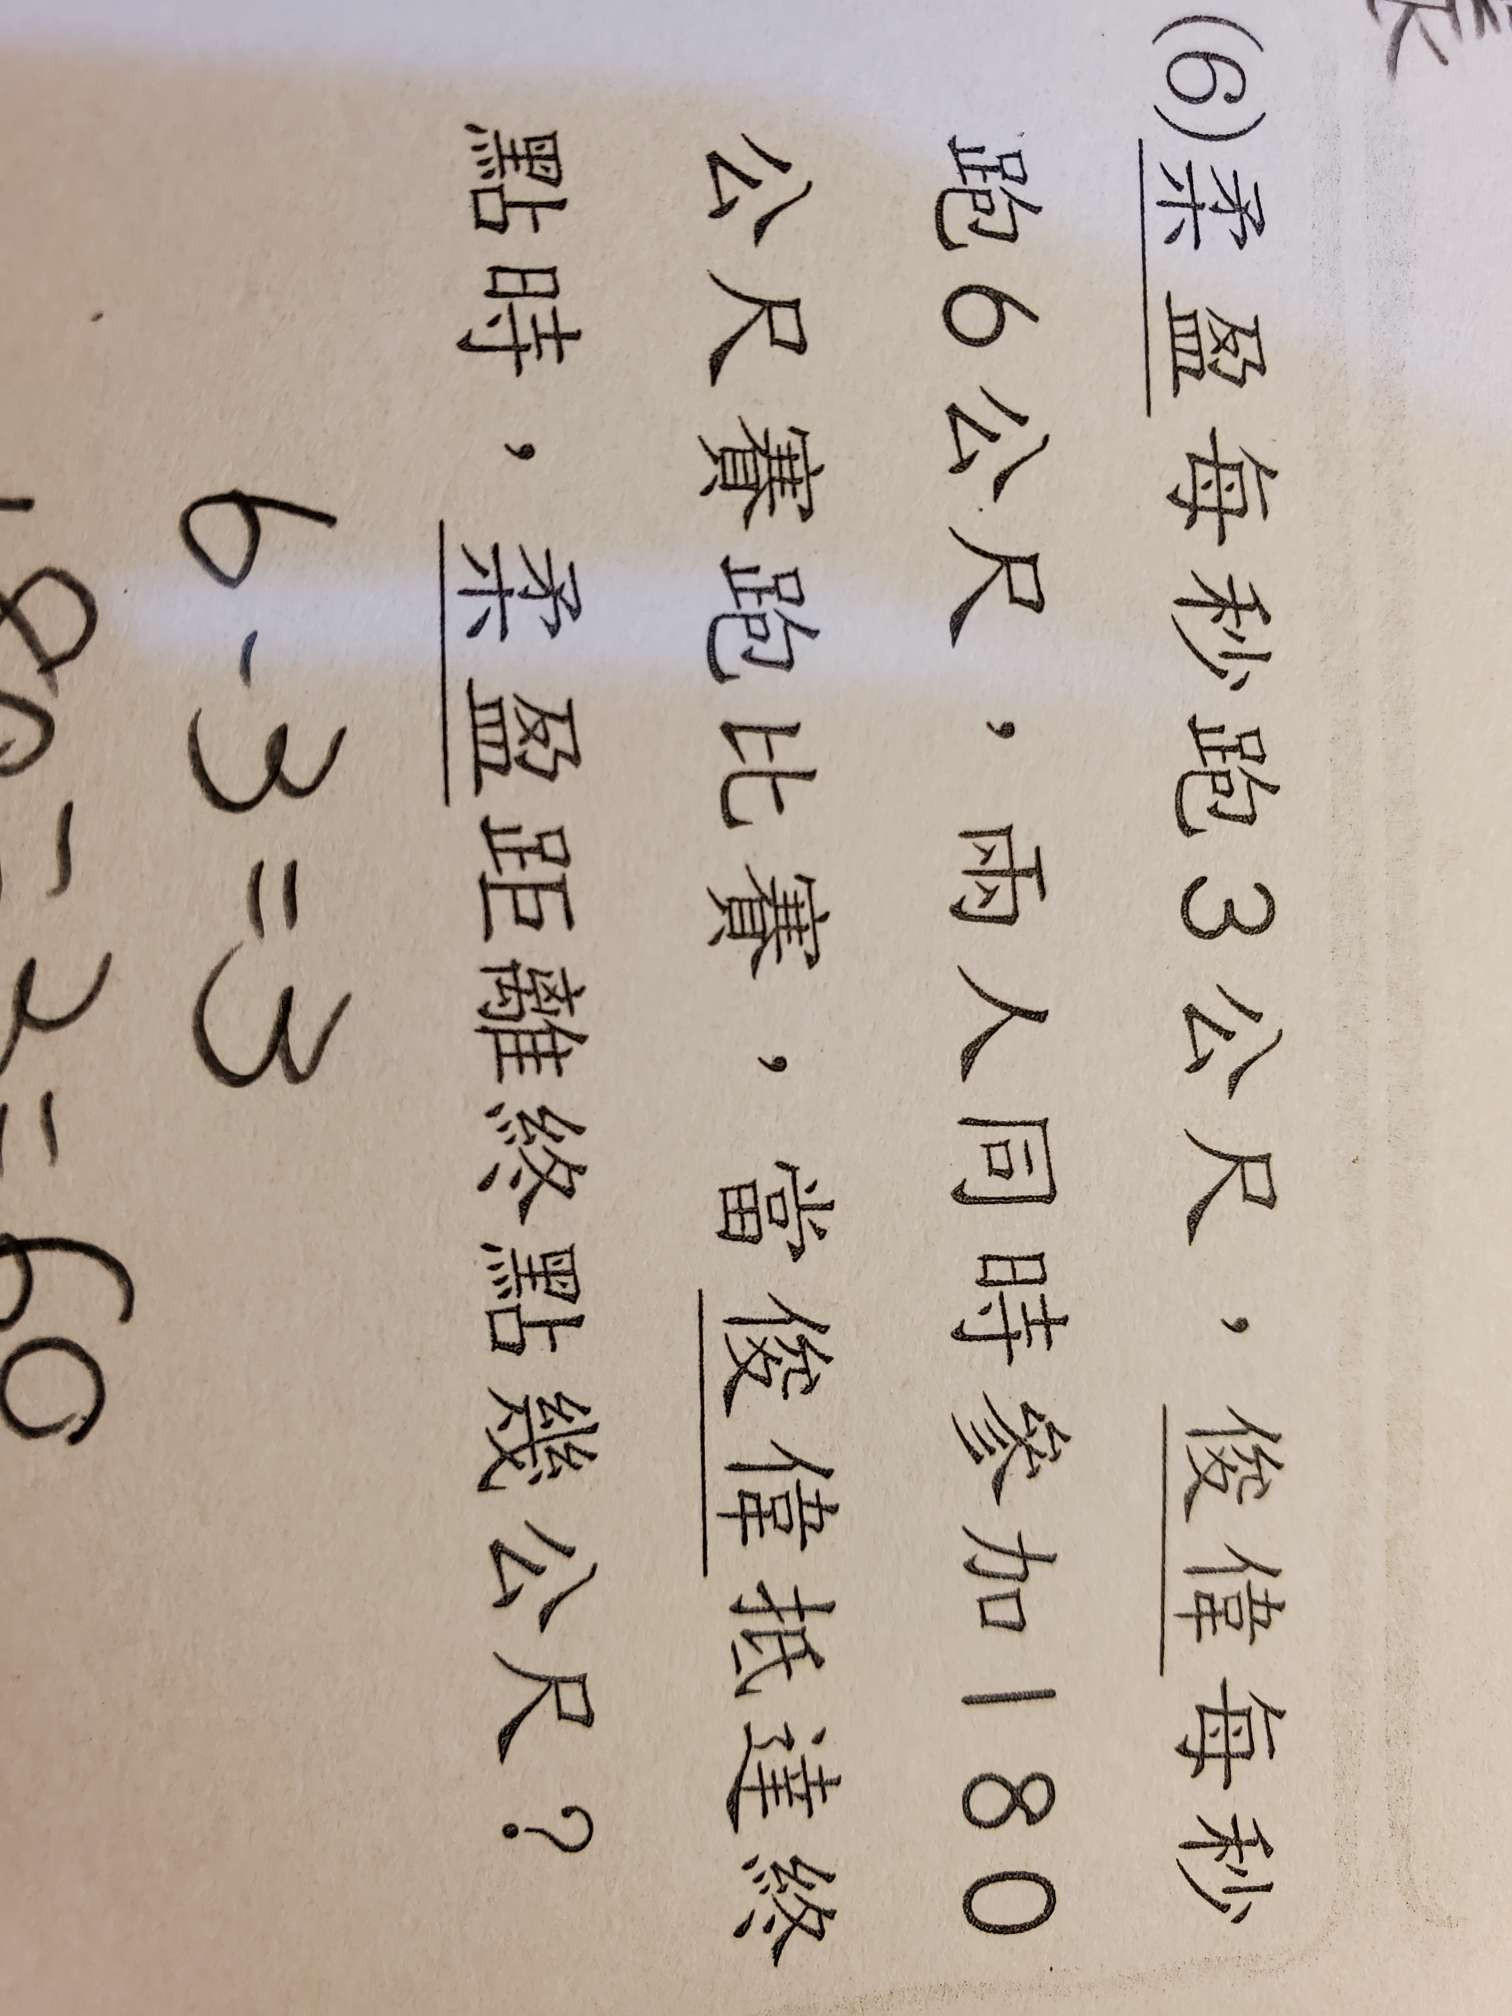 (6)柔盈每秒跑3公尺，俊偉每秒
跑6公尺，兩人同時參加180
公尺賽跑比賽，當俊偉抵達終
點時，柔盈距離終點幾公尺？
6-3=3